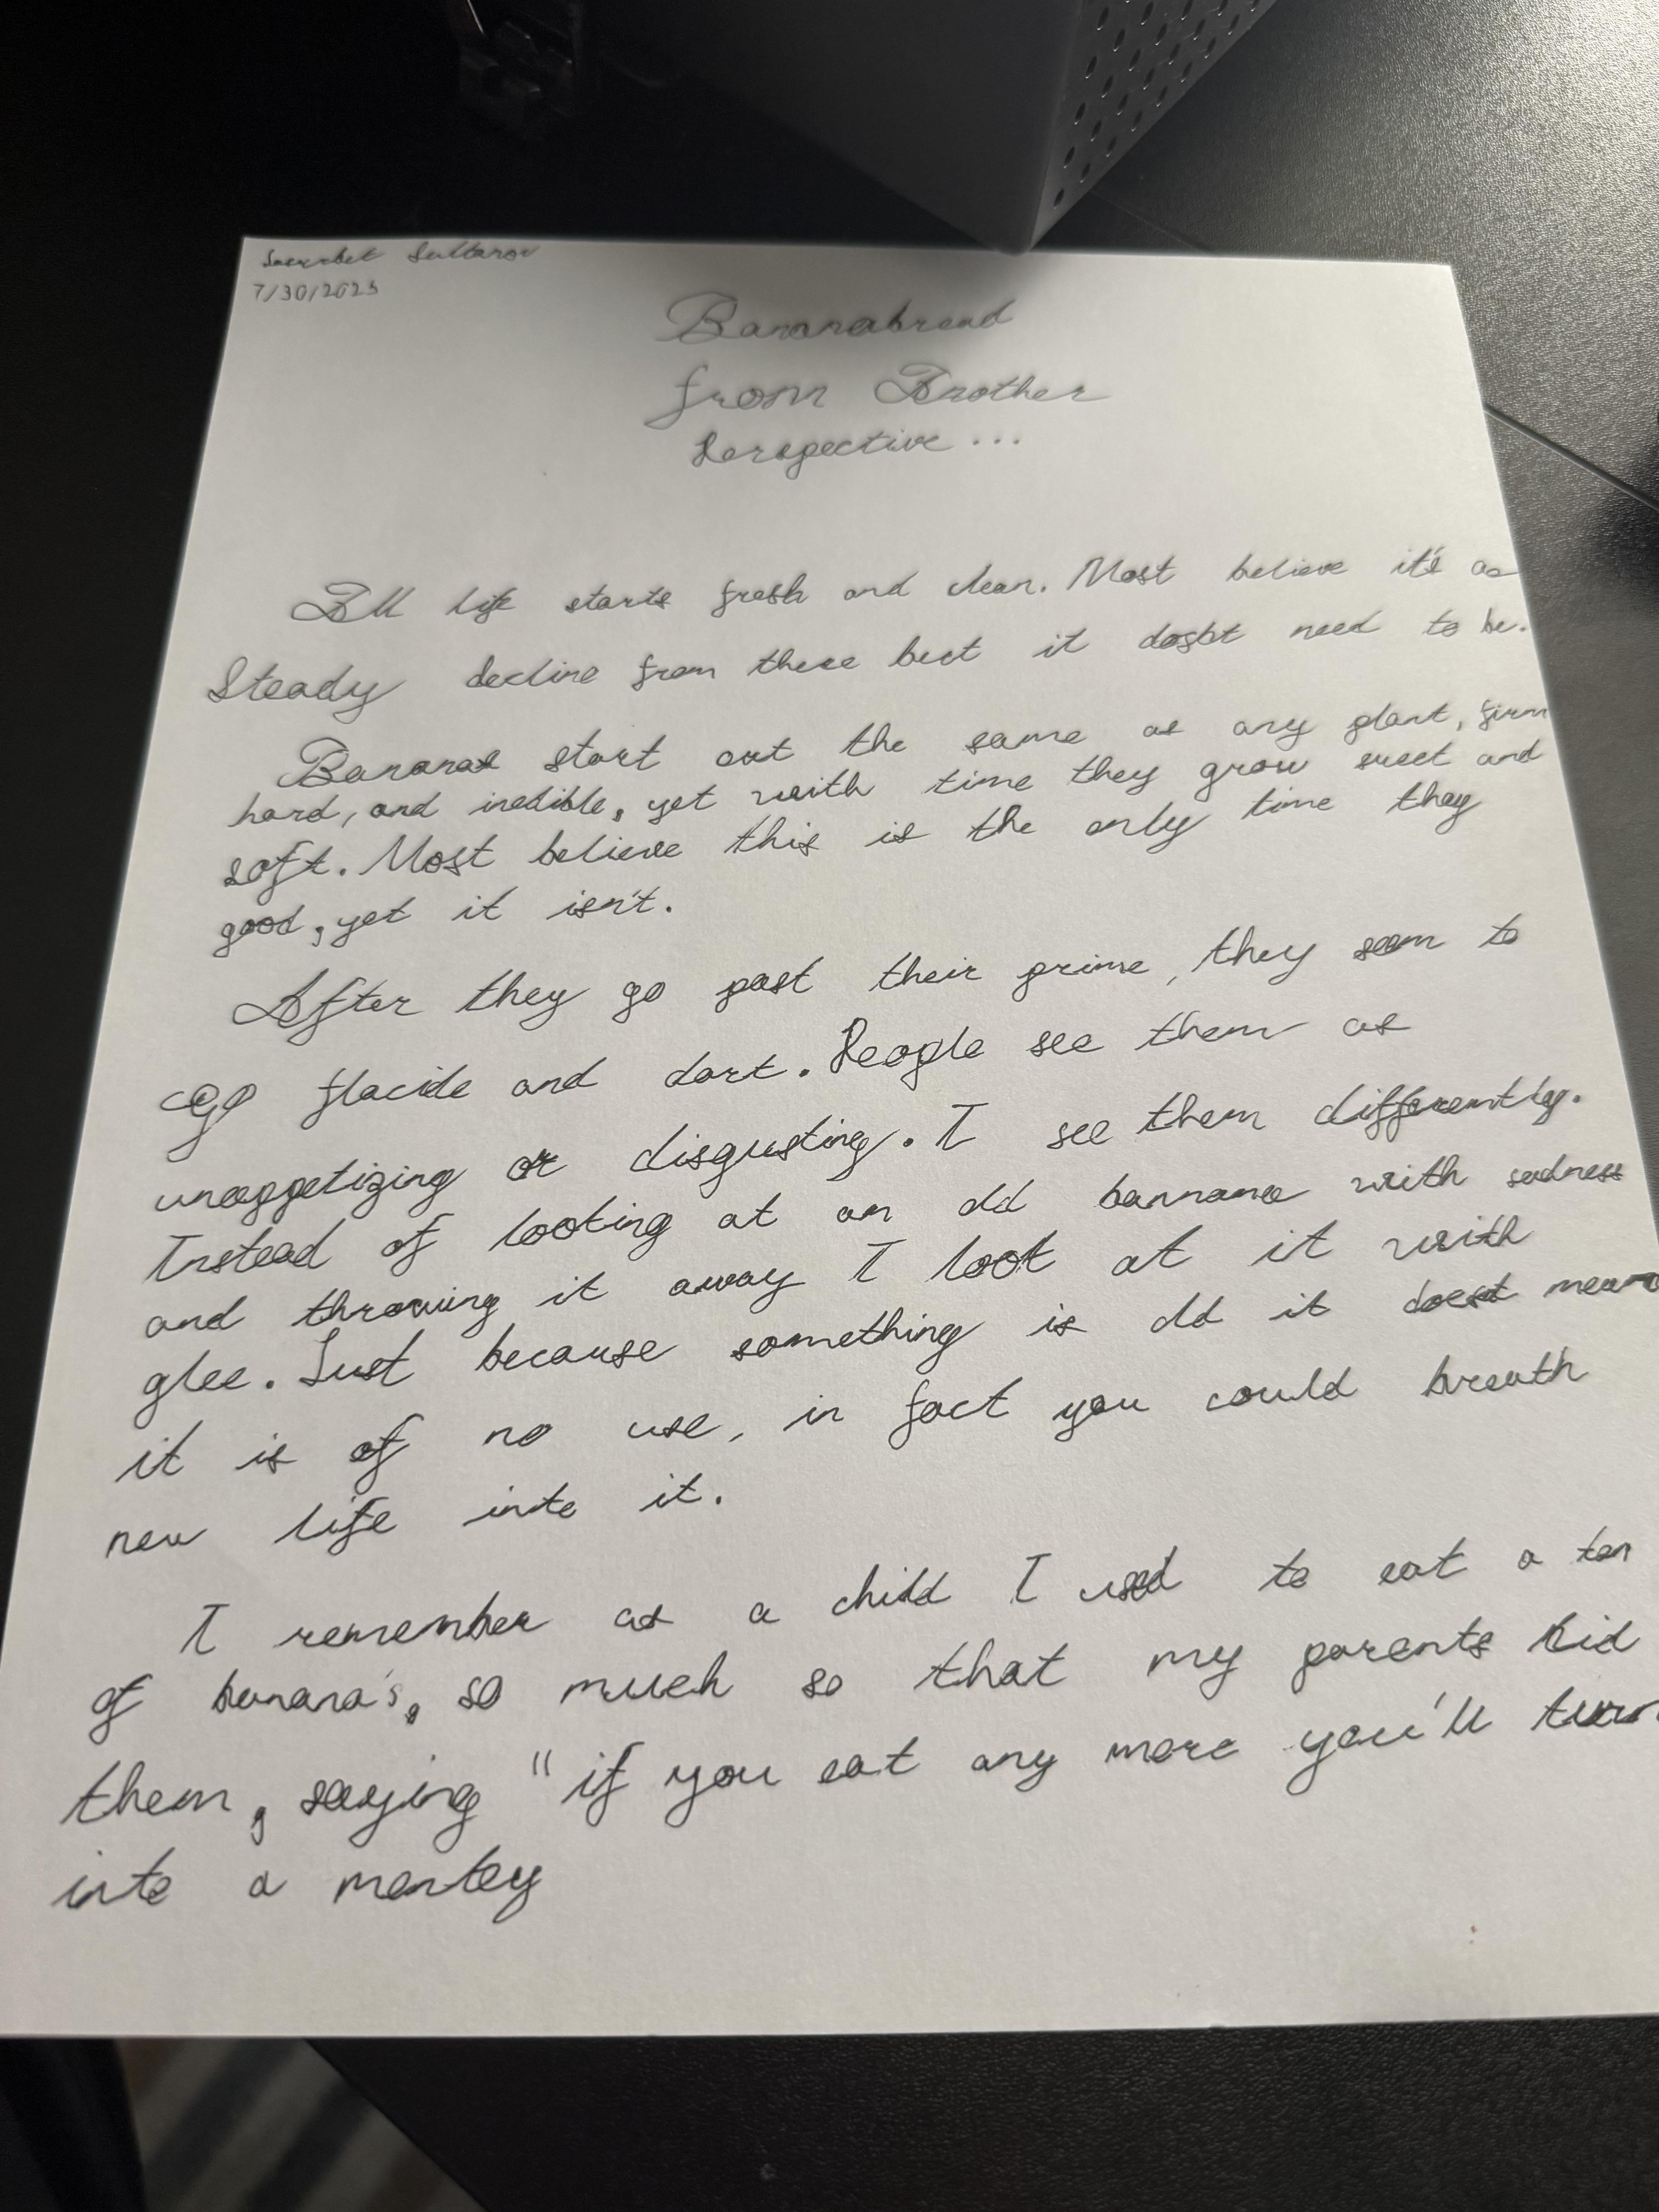 Sultanov
7/30/2025
Bannabread
from Another
Perspective ...
All life starts fresh and clean. Most believe it's as
Steady decline from there but it dosn't need to be.
Bananas start out the same as any plant, firm
hard, and inedible, yet with time they grow sweet and
soft. Most believe this is the only time they
good, yet it isn't.
After they go past their prime, they seem to
go flacide and dark. People see them as
unappetizing or disgusting. I see them differently.
Instead of looking at an old bannana with sadness
and throwing it away I look at it with
glee. Just because something is old it doesnt mean
it is of no use, in fact you could breath
new life into it.
I remember as a child I used to eat a ton
of banana's, so much so that my parents hid
them, saying "if you eat any more you'll turn
into a monkey